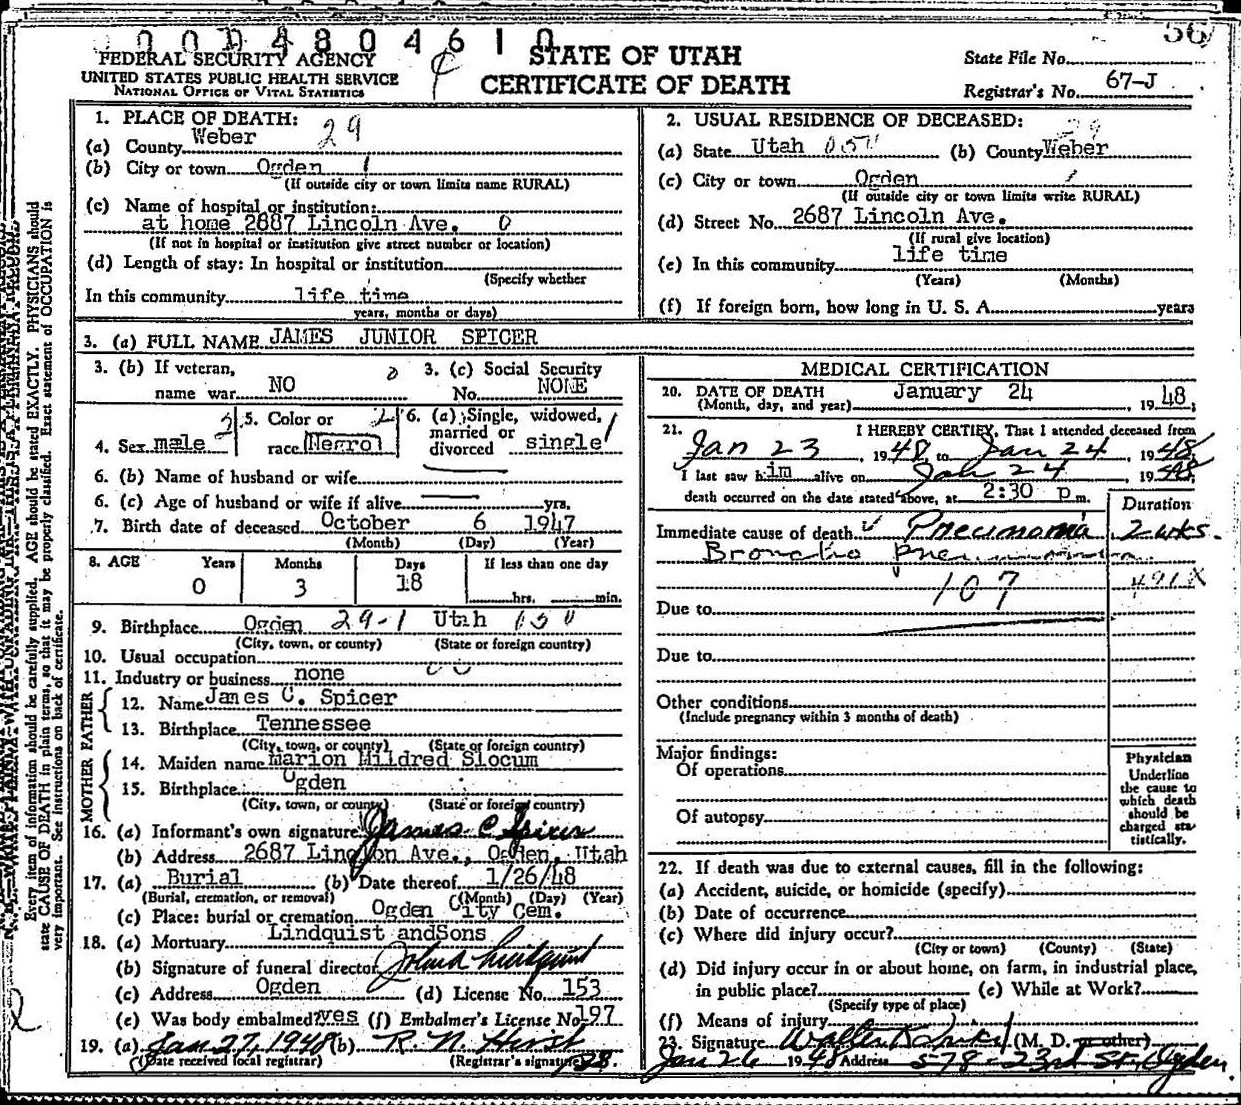 0004804610
FEDERAL SECURITY AGENCY
UNITED STATES PUBLIC HEALTH SERVICE
NATIONAL OFFICE OF VITAL STATISTICS
STATE OF UTAH
CERTIFICATE OF DEATH
56
State File No.
Registrar's No. 67-J
1. PLACE OF DEATH:
(a) County Weber 29
(b) City or town Ogden 1
(If outside city or town limits name RURAL)
(c) Name of hospital or institution:
at home 2687 Lincoln Ave. 0
(If not in hospital or institution give street number or location)
(d) Length of stay: In hospital or institution
(Specify whether
In this community life time
years, months or days)
2. USUAL RESIDENCE OF DECEASED:
29
(a) State Utah (b) County Weber
(c) City or town Ogden
(If outside city or town limits write RURAL)
(d) Street No. 2687 Lincoln Ave.
(If rural give location)
(e) In this community life time
(Years) (Months)
(f) If foreign born, how long in U. S. A. years
3. (a) FULL NAME JAMES JUNIOR SPICER
3. (b) If veteran,
name war NO
3. (c) Social Security
No. NONE
4. Sex male
5. Color or
race Negro
6. (a) Single, widowed,
married or
divorced single
6. (b) Name of husband or wife
6. (c) Age of husband or wife if alive yrs.
7. Birth date of deceased October 6 1947
(Month) (Day) (Year)
8. AGE Years Months Days If less than one day
0 3 18 hrs. min.
9. Birthplace Ogden 29-1 Utah
(City, town, or county) (State or foreign country)
10. Usual occupation
11. Industry or business none
FATHER
12. Name James C. Spicer
13. Birthplace Tennessee
(City, town, or county) (State or foreign country)
MOTHER
14. Maiden name Marion Mildred Slocum
15. Birthplace Ogden
(City, town, or county) (State or foreign country)
16. (a) Informant's own signature James C Spicer
(b) Address 2687 Lincoln Ave., Ogden, Utah
17. (a) Burial (b) Date thereof 1/26/48
(Burial, cremation, or removal) (Month) (Day) (Year)
(c) Place: burial or cremation Ogden City Cem.
18. (a) Mortuary Lindquist andSons
(b) Signature of funeral director Lindquist
(c) Address Ogden (d) License No. 153
(e) Was body embalmed? yes (f) Embalmer's License No. 197
19. (a) Jan 27, 1948 (b) R. N. Hirst
(Date received local registrar) (Registrar's signature)
MEDICAL CERTIFICATION
20. DATE OF DEATH January 24
(Month, day, and year) 1948;
21. I HEREBY CERTIFY, That I attended deceased from
Jan 23, 1948, to Jan 24, 1948,
I last saw him alive on Jan 24, 1948;
death occurred on the date stated above, at 2:30 p.m.
Duration
Immediate cause of death Pneumonia 2 wks.
Broncho
107 491X
Due to
Due to
Other conditions
(Include pregnancy within 3 months of death)
Major findings:
Of operations
Of autopsy
Physician
Underline
the cause to
which death
should be
charged sta-
tistically.
22. If death was due to external causes, fill in the following:
(a) Accident, suicide, or homicide (specify)
(b) Date of occurrence
(c) Where did injury occur?
(City or town) (County) (State)
(d) Did injury occur in or about home, on farm, in industrial place,
in public place? (e) While at Work?
(Specify type of place)
(f) Means of injury
23. Signature Walter (M. D. or other)
Jan 26 1948 Address 578-23rd St, Ogden
Every item of information should be carefully supplied. AGE should be stated EXACTLY. PHYSICIANS should
state CAUSE OF DEATH in plain terms, so that it may be properly classified. Exact statement of OCCUPATION is
very important. See instructions on back of certificate.